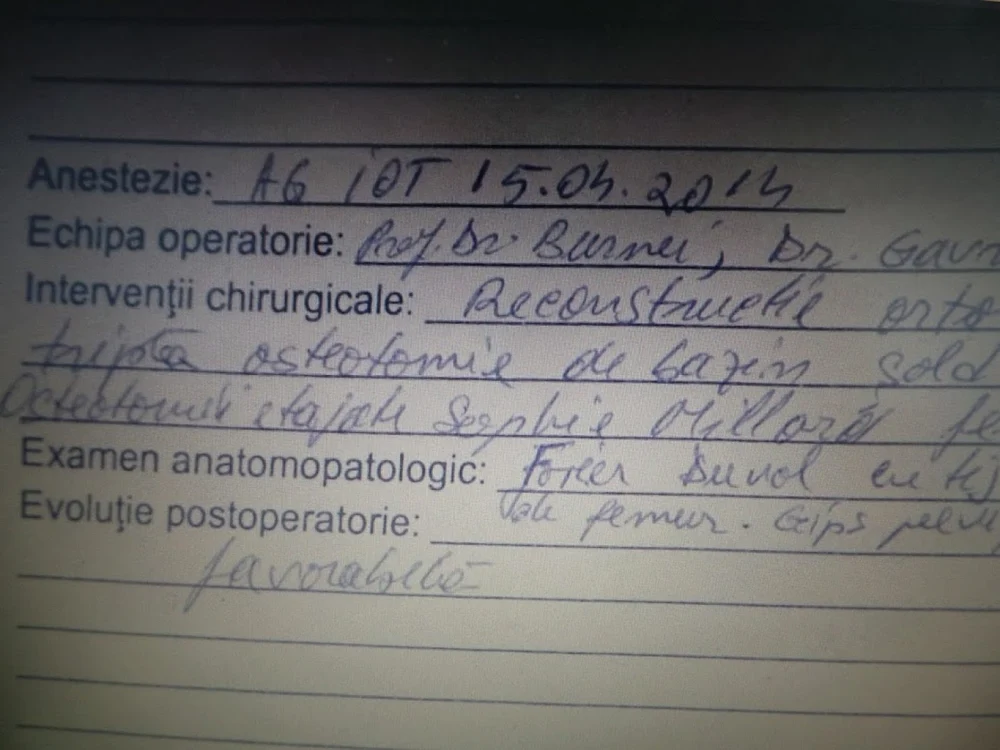 Anestezie: AG IOT 15.04.2014
Echipa operatorie: Prof. Dr. Burnei, Dr. Gavr
Intervenţii chirurgicale: Reconstructie orto
tripla osteotomie de bazin sold
Osteotomii etajate Millard fe
Examen anatomopatologic: Duval cu tij
Evoluţie postoperatorie: femur. Gips pelvi
favorabilă